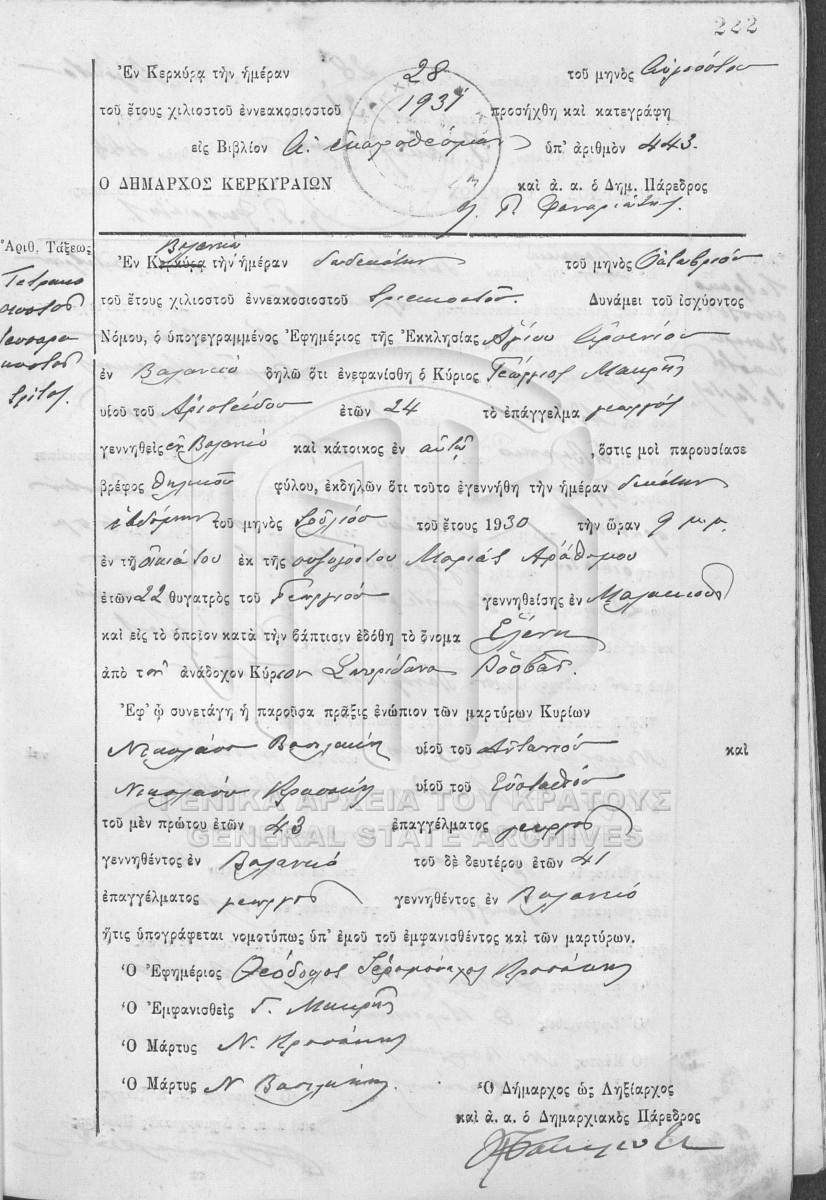 222
Ἐν Κερκύρᾳ τὴν ἡμέραν 28 τοῦ μηνὸς Αὐγούστου
τοῦ ἔτους χιλιοστοῦ ἐννεακοσιοστοῦ 1931 προσήχθη καὶ κατεγράφη
εἰς Βιβλίον Α. ἐκπροθέσμων ὑπ' ἀριθμὸν 443.
Ο ΔΗΜΑΡΧΟΣ ΚΕΡΚΥΡΑΙΩΝ καὶ ἀ. α. ὁ Δημ. Πάρεδρος
Ἀριθ. Τάξεως
Τετρακο
σιοστὸς
τεσσαρα
κοστὸς
τρίτος.
Βαλανειό
Ἐν Κερκύρᾳ τὴν ἡμέραν δωδεκάτην τοῦ μηνὸς Ὀκτωβρίου
τοῦ ἔτους χιλιοστοῦ ἐννεακοσιοστοῦ τριακοστοῦ. Δυνάμει τοῦ ἰσχύοντος
Νόμου, ὁ ὑπογεγραμμένος Ἐφημέριος τῆς Ἐκκλησίας Ἁγίου Ἀρσενίου
ἐν Βαλανειό δηλῶ ὅτι ἐνεφανίσθη ὁ Κύριος Γεώργιος Μακρῆς
υἱοῦ τοῦ Ἀριστείδου ἐτῶν 24 τὸ ἐπάγγελμα γεωργός
γεννηθεὶς ἐν Βαλανειό καὶ κάτοικος ἐν αὐτῷ , ὅστις μοὶ παρουσίασε
βρέφος θηλυκοῦ φύλου, ἐκδηλῶν ὅτι τοῦτο ἐγεννήθη τὴν ἡμέραν δεκάτην
ἑβδόμην τοῦ μηνὸς Ἰουλίου τοῦ ἔτους 1930 τὴν ὥραν 9 μ.μ.
ἐν τῇ οἰκίᾳ του ἐκ τῆς συζύγου του Μαρίας
ἐτῶν 22 θυγατρὸς τοῦ Γεωργίου γεννηθείσης ἐν
καὶ εἰς τὸ ὁποῖον κατὰ τὴν βάπτισιν ἐδόθη τὸ ὄνομα Ἑλένη
ἀπὸ τὸν ἀνάδοχον Κύριον Σπυρίδωνα
Ἐφ' ᾧ συνετάγη ἡ παροῦσα πρᾶξις ἐνώπιον τῶν μαρτύρων Κυρίων
Νικολάου Βασιλάκη υἱοῦ τοῦ Ἀντωνίου καὶ
Νικολάου Κροσάκη υἱοῦ τοῦ Εὐσταθίου
τοῦ μὲν πρώτου ἐτῶν 43 ἐπαγγέλματος γεωργός
γεννηθέντος ἐν Βαλανειό τοῦ δὲ δευτέρου ἐτῶν 41
ἐπαγγέλματος γεωργός γεννηθέντος ἐν Βαλανειό
ἥτις ὑπογράφεται νομοτύπως ὑπ' ἐμοῦ τοῦ ἐμφανισθέντος καὶ τῶν μαρτύρων.
Ὁ Ἐφημέριος Θεόδουλος Ἱερομόναχος Κροσάκης
Ὁ Ἐμφανισθεὶς Γ. Μακρῆς
Ὁ Μάρτυς Ν. Κροσάκης
Ὁ Μάρτυς Ν Βασιλάκης.
Ὁ Δήμαρχος ὡς Ληξίαρχος
καὶ ἀ. α. ὁ Δημαρχιακὸς Πάρεδρος
ΓΕΝΙΚΑ ΑΡΧΕΙΑ ΤΟΥ ΚΡΑΤΟΥΣ
GENERAL STATE ARCHIVES